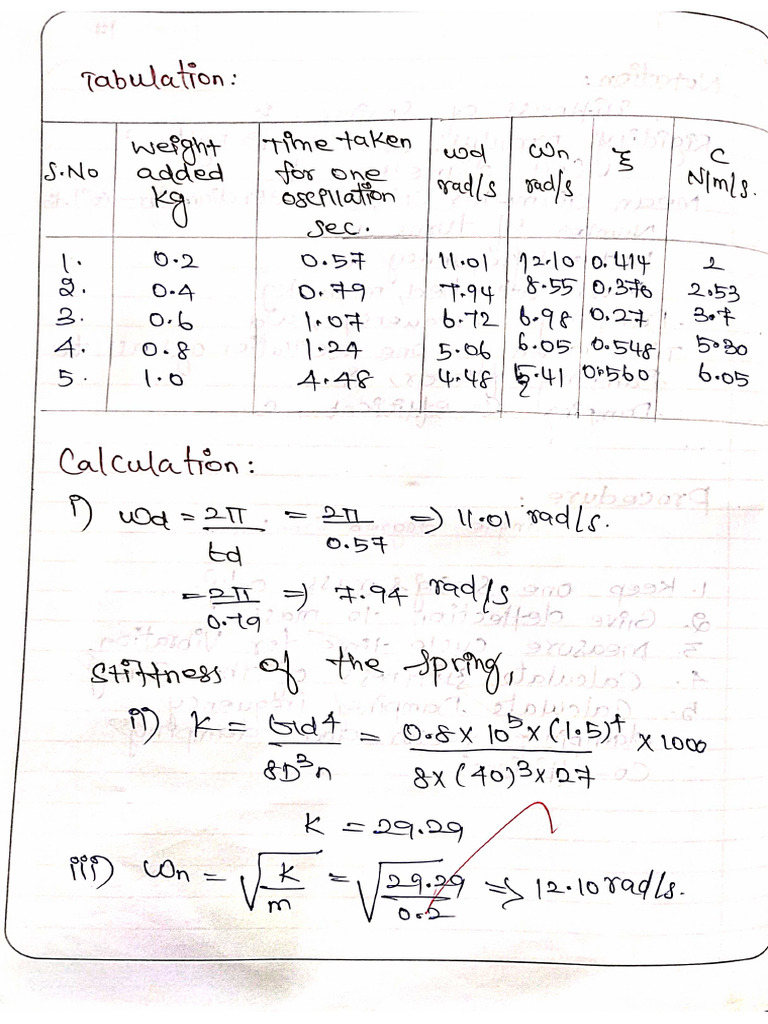 Tabulation:
S.No | Weight added kg | Time taken for one oscillation sec. | ωd rad/s | ωn rad/s | ξ | C N/m/s.
1. | 0.2 | 0.57 | 11.01 | 12.10 | 0.414 | 2
2. | 0.4 | 0.79 | 7.94 | 8.55 | 0.370 | 2.53
3. | 0.6 | 1.07 | 6.72 | 6.98 | 0.27 | 3.7
4. | 0.8 | 1.24 | 5.06 | 6.05 | 0.548 | 5.30
5. | 1.0 | 4.48 | 4.48 | 5.41 | 0.560 | 6.05
Calculation:
i) ωd = 2π/td = 2π/0.57 => 11.01 rad/s.
= 2π/0.79 => 7.94 rad/s
Stiffness of the spring,
ii) K = Gd⁴/8D³n = 0.8 x 10⁵ x (1.5)⁴/8x(40)³x27 x 1000
K = 29.29
iii) ωn = √K/m = √29.29/0.2 => 12.10 rad/s.